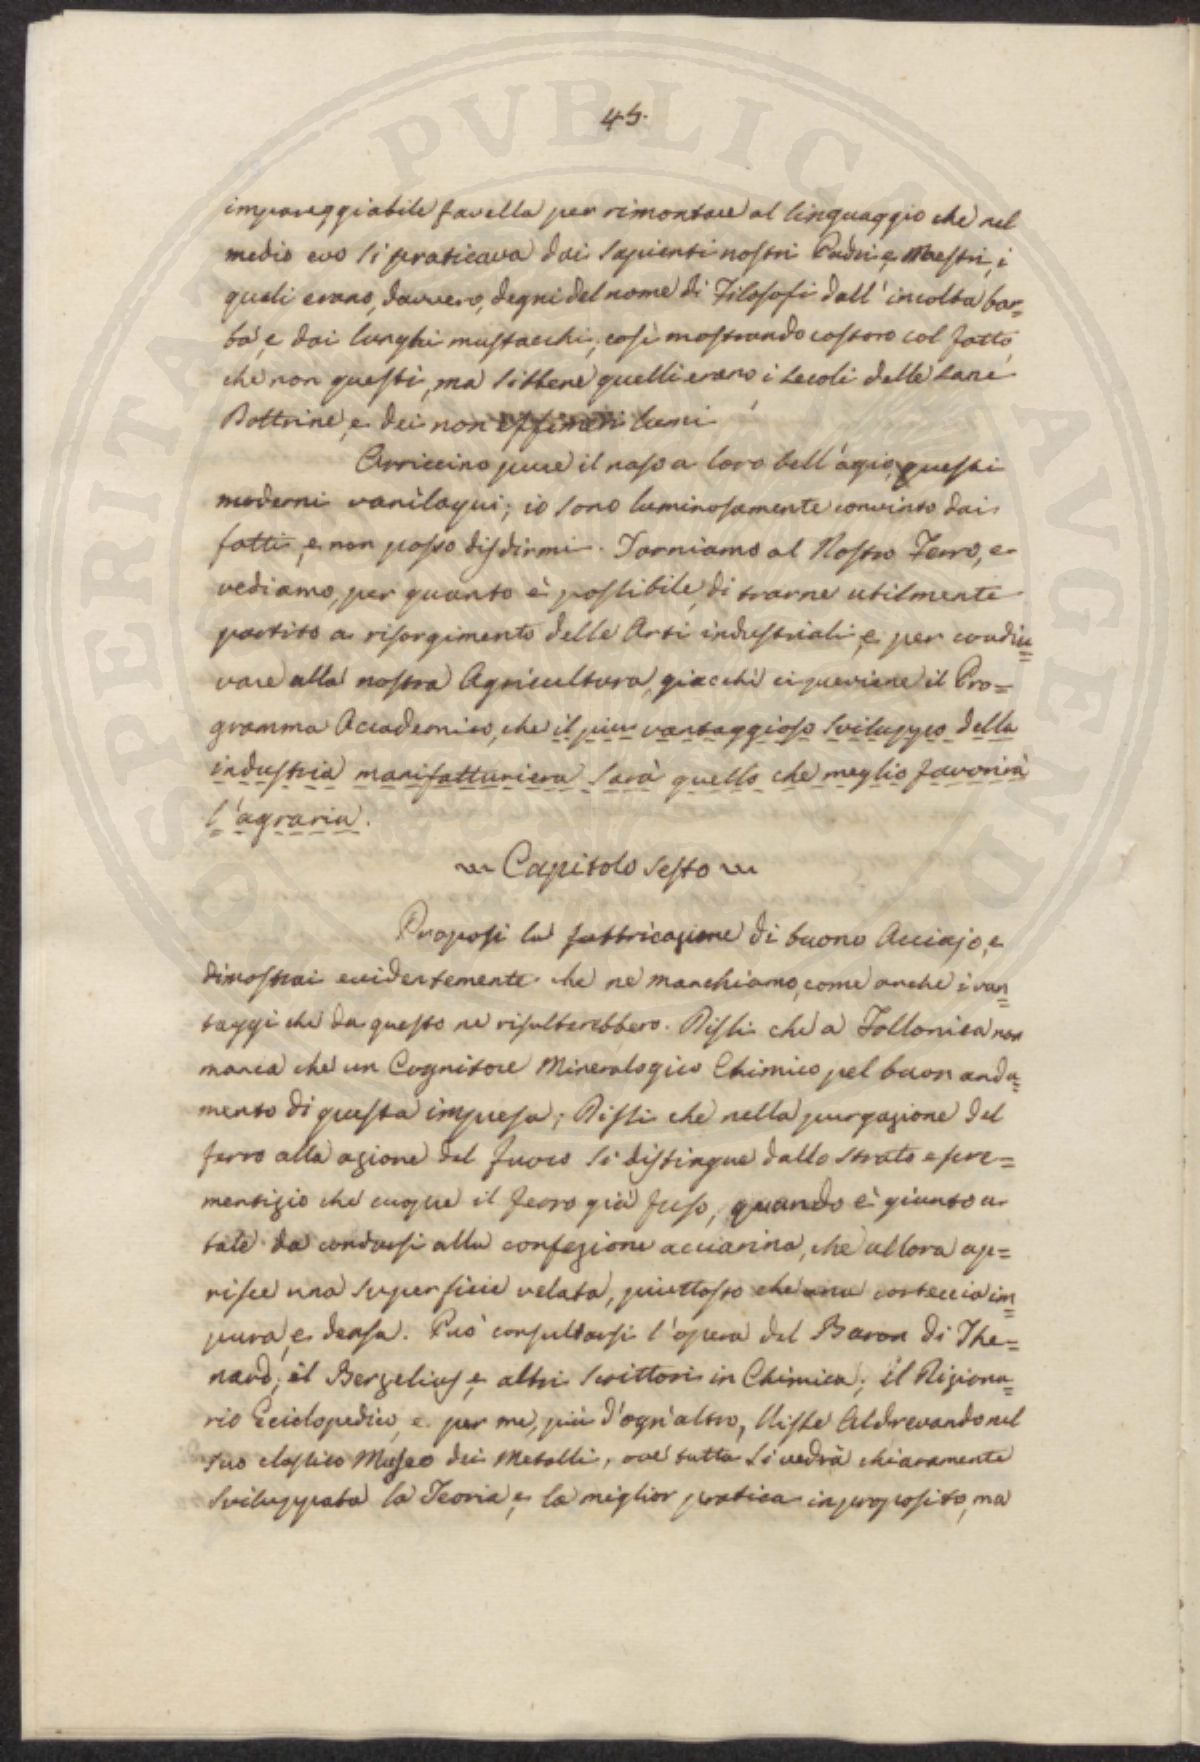 45.
impareggiabile favella per rimontare al linguaggio che nel
medio evo si praticava dai sapienti nostri Padri e Maestri, i
quali erano, davvero, degni del nome di Filosofi dall'incolta bar=
ba, e dai lunghi mustacchi, così mostrando costoro col fatto,
che non questi, ma sibbene quelli erano i secoli delle sane
Dottrine, e dei non effimeri lumi
Arriccino pure il naso a loro bell'agio, questi
moderni vaniloqui; io sono luminosamente convinto dai
fatti, e non posso disdirmi. Torniamo al Nostro Ferro, e
vediamo, per quanto è possibile, di trarne utilmente
partito a risorgimento delle Arti industriali, e per coadiu=
vare alla nostra Agricultura, giacchè ci previene il Pro=
gramma Accademico, che il più vantaggioso sviluppo della
industria manifatturiera sarà quello che meglio favorirà
l'agraria.
Capitolo Sesto
Proposi la fabbricazione di buono Acciajo, e
dimostrai evidentemente che ne manchiamo, come anche i van=
taggi che da questo ne risulterebbero. Dissi che a Follonica non
manca che un Cognitore Mineralogico Chimico pel buon anda=
mento di questa impresa; Dissi che nella purgazione del
ferro alla azione del fuoco si distingue dallo strato espre=
mentizio che cuopre il ferro già fuso, quando è giunto a
tale da condursi alla confezione acciarina, che allora ap=
risce una superficie velata, piuttosto che una corteccia im=
pura, e densa. Può consultarsi l'opera del Baron di The=
nard, il Berzelius, e altri Scrittori in Chimica; il Diziona=
rio Eciclopedico, e per me, più d'ogn'altro, Ulisse Aldrovando nel
suo classico Museo dei Metalli, ove tutta si vedrà chiaramente
sviluppata la Teoria, e la miglior pratica in proposito, ma
PROSPERITATI PVBLICAE AVGENDAE